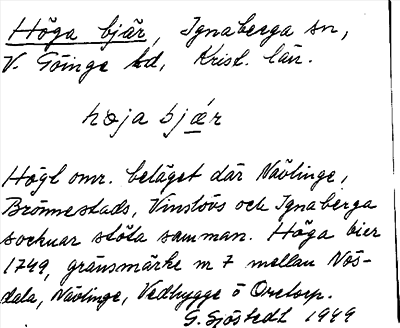 Höga bjär, Ignaberga sn,
V. Göinge hd, Krist. län.
høja bjær
Högl. omr. beläget där Nävlinge,
Brönnestads, Vinslövs och Ignaberga
socknar stöta samman. Höga bier
1749, gränsmärke n 7 mellan Nös-
dala, Nävlinge, Vedhygge o Oretorp.
G. Sjöstedt 1949